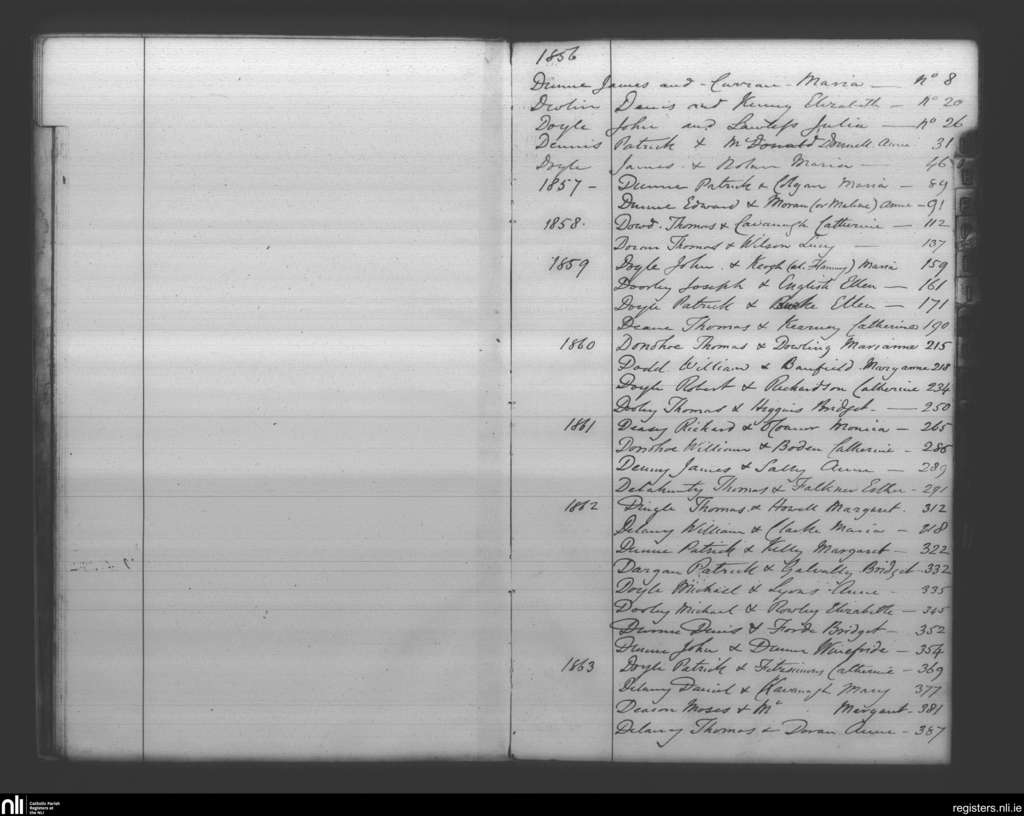 1856
Dunne James and Curran Maria — No 8
Devlin Denis and Kenny Elizabeth — No 20
Doyle John and Lawless Julia — No 26
Dennis Patrick & McDonald Donnell Anne 31
Doyle James & Nolan Maria — 46
1857 — Dunne Patrick & Maria — 89
Dunne Edward & Moran (or Malone) Anne — 91
1858. Dowd Thomas & Cavanagh Catherine — 112
Doran Thomas & Wilson Lucy — 137
1859 Doyle John & Keogh (al. Fleming) Maria 159
Doorley Joseph & English Ellen — 161
Doyle Patrick & Burke Ellen — 171
Deane Thomas & Kearney Catherine 190
1860 Donohoe Thomas & Dowling Marianne 215
Dodd William & Banfield Maryanne 218
Doyle Robert & Richardson Catherine 234
Dooley Thomas & Higgins Bridget — 250
1861 Deasy Richard & OConnor Monica — 265
Donohoe William & Boden Catherine - 286
Denny James & Sally Anne — 289
Delahunty Thomas & Falkner Esther - 291
1862 Dingle Thomas & Howell Margaret. 312
Delany William & Clarke Maria — 218
Dunne Patrick & Kelly Margaret — 322
Dargan Patrick & Bridget - 332
Doyle Michael & Lyons Anne - 335
Dooley Michael & Rowley Elizabeth — 345
Dunne Denis & Forde Bridget — 352
Dunne John & Dunne Winefride — 354
1863 Doyle Patrick & Fitzsimons Catherine — 369
Delany Daniel & Kavanagh Mary 377
Deacon Moses & Mc Margaret - 381
Delany Thomas & Doran Anne - 387
nli Catholic Parish
Registers at
the NLI
registers.nli.ie